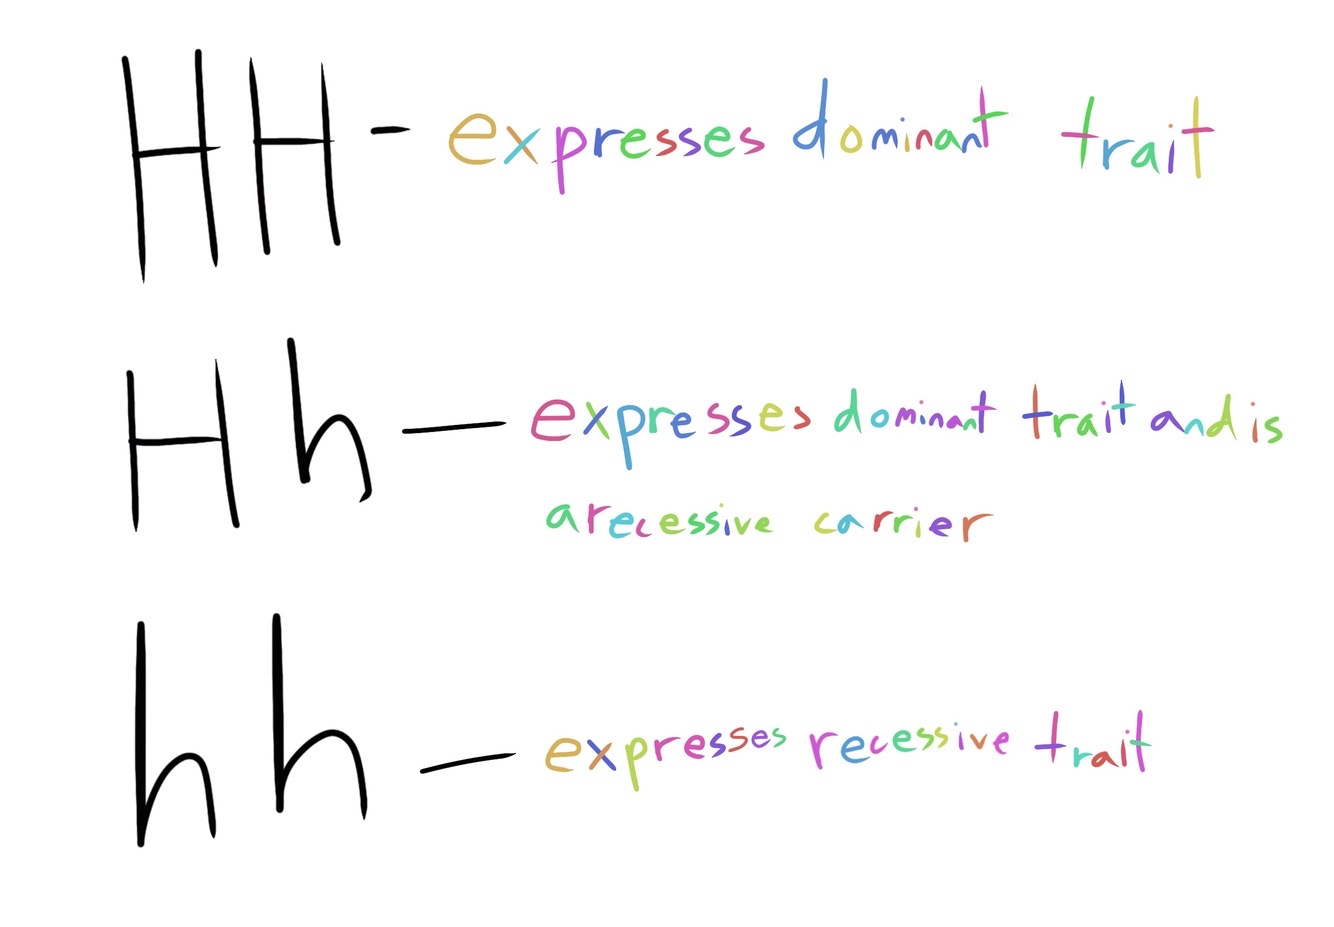 HH - expresses dominant trait
Hh - expresses dominant trait and is
a recessive carrier
hh - expresses recessive trait